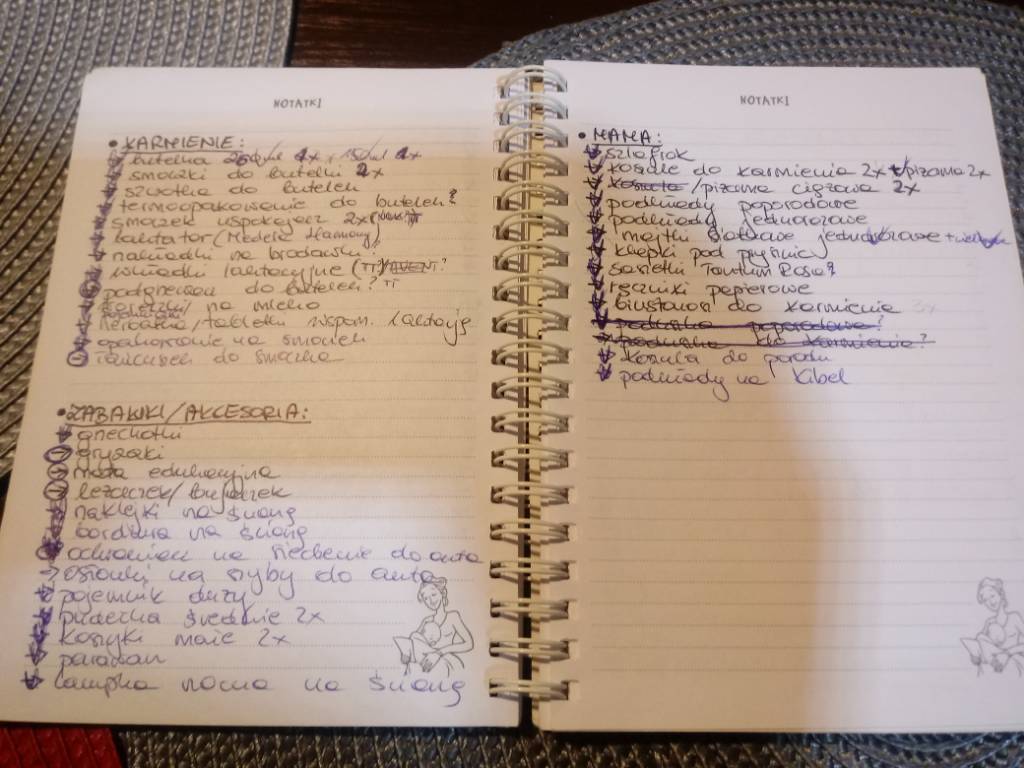 NOTATKI
• KARMIENIE:
butelka 1x, 150ml 1x
smoczki do butelki 2x
szczotka do butelek
termoopakowanie do butelek?
smoczek uspokajacz 2x
laktator (Medela Harmony)
nakładki na brodawki?
wkładki laktacyjne
podgrzewacz do butelek?
na mleko
herbatka/tabletki wspom. laktację
opakowanie na smoczek
łańcuszek do smoczka
• ZABAWKI/AKCESORIA:
grzechotki
gryzaki
mata edukacyjna
leżaczek/bujaczek
naklejki na ścianę
bordiura na ścianę
ochraniacz na siedzenie do auta
osłonki na szyby do auta
pojemnik duży
pudełka średnie 2x
koszyki małe 2x
parawan
lampka nocna na ścianę
NOTATKI
• MAMA:
szlafrok
koszule do karmienia 2x /piżama 2x
koszula/piżama ciążowa 2x
podkłady poporodowe
podkłady jednorazowe
majtki siatkowe jednorazowe
klapki pod prysznic
saszetki Tantum Rosa?
ręczniki papierowe
biustonosz do karmienia
poduszka poporodowa?
poduszka do karmienia?
koszula do porodu
podkłady na kibel